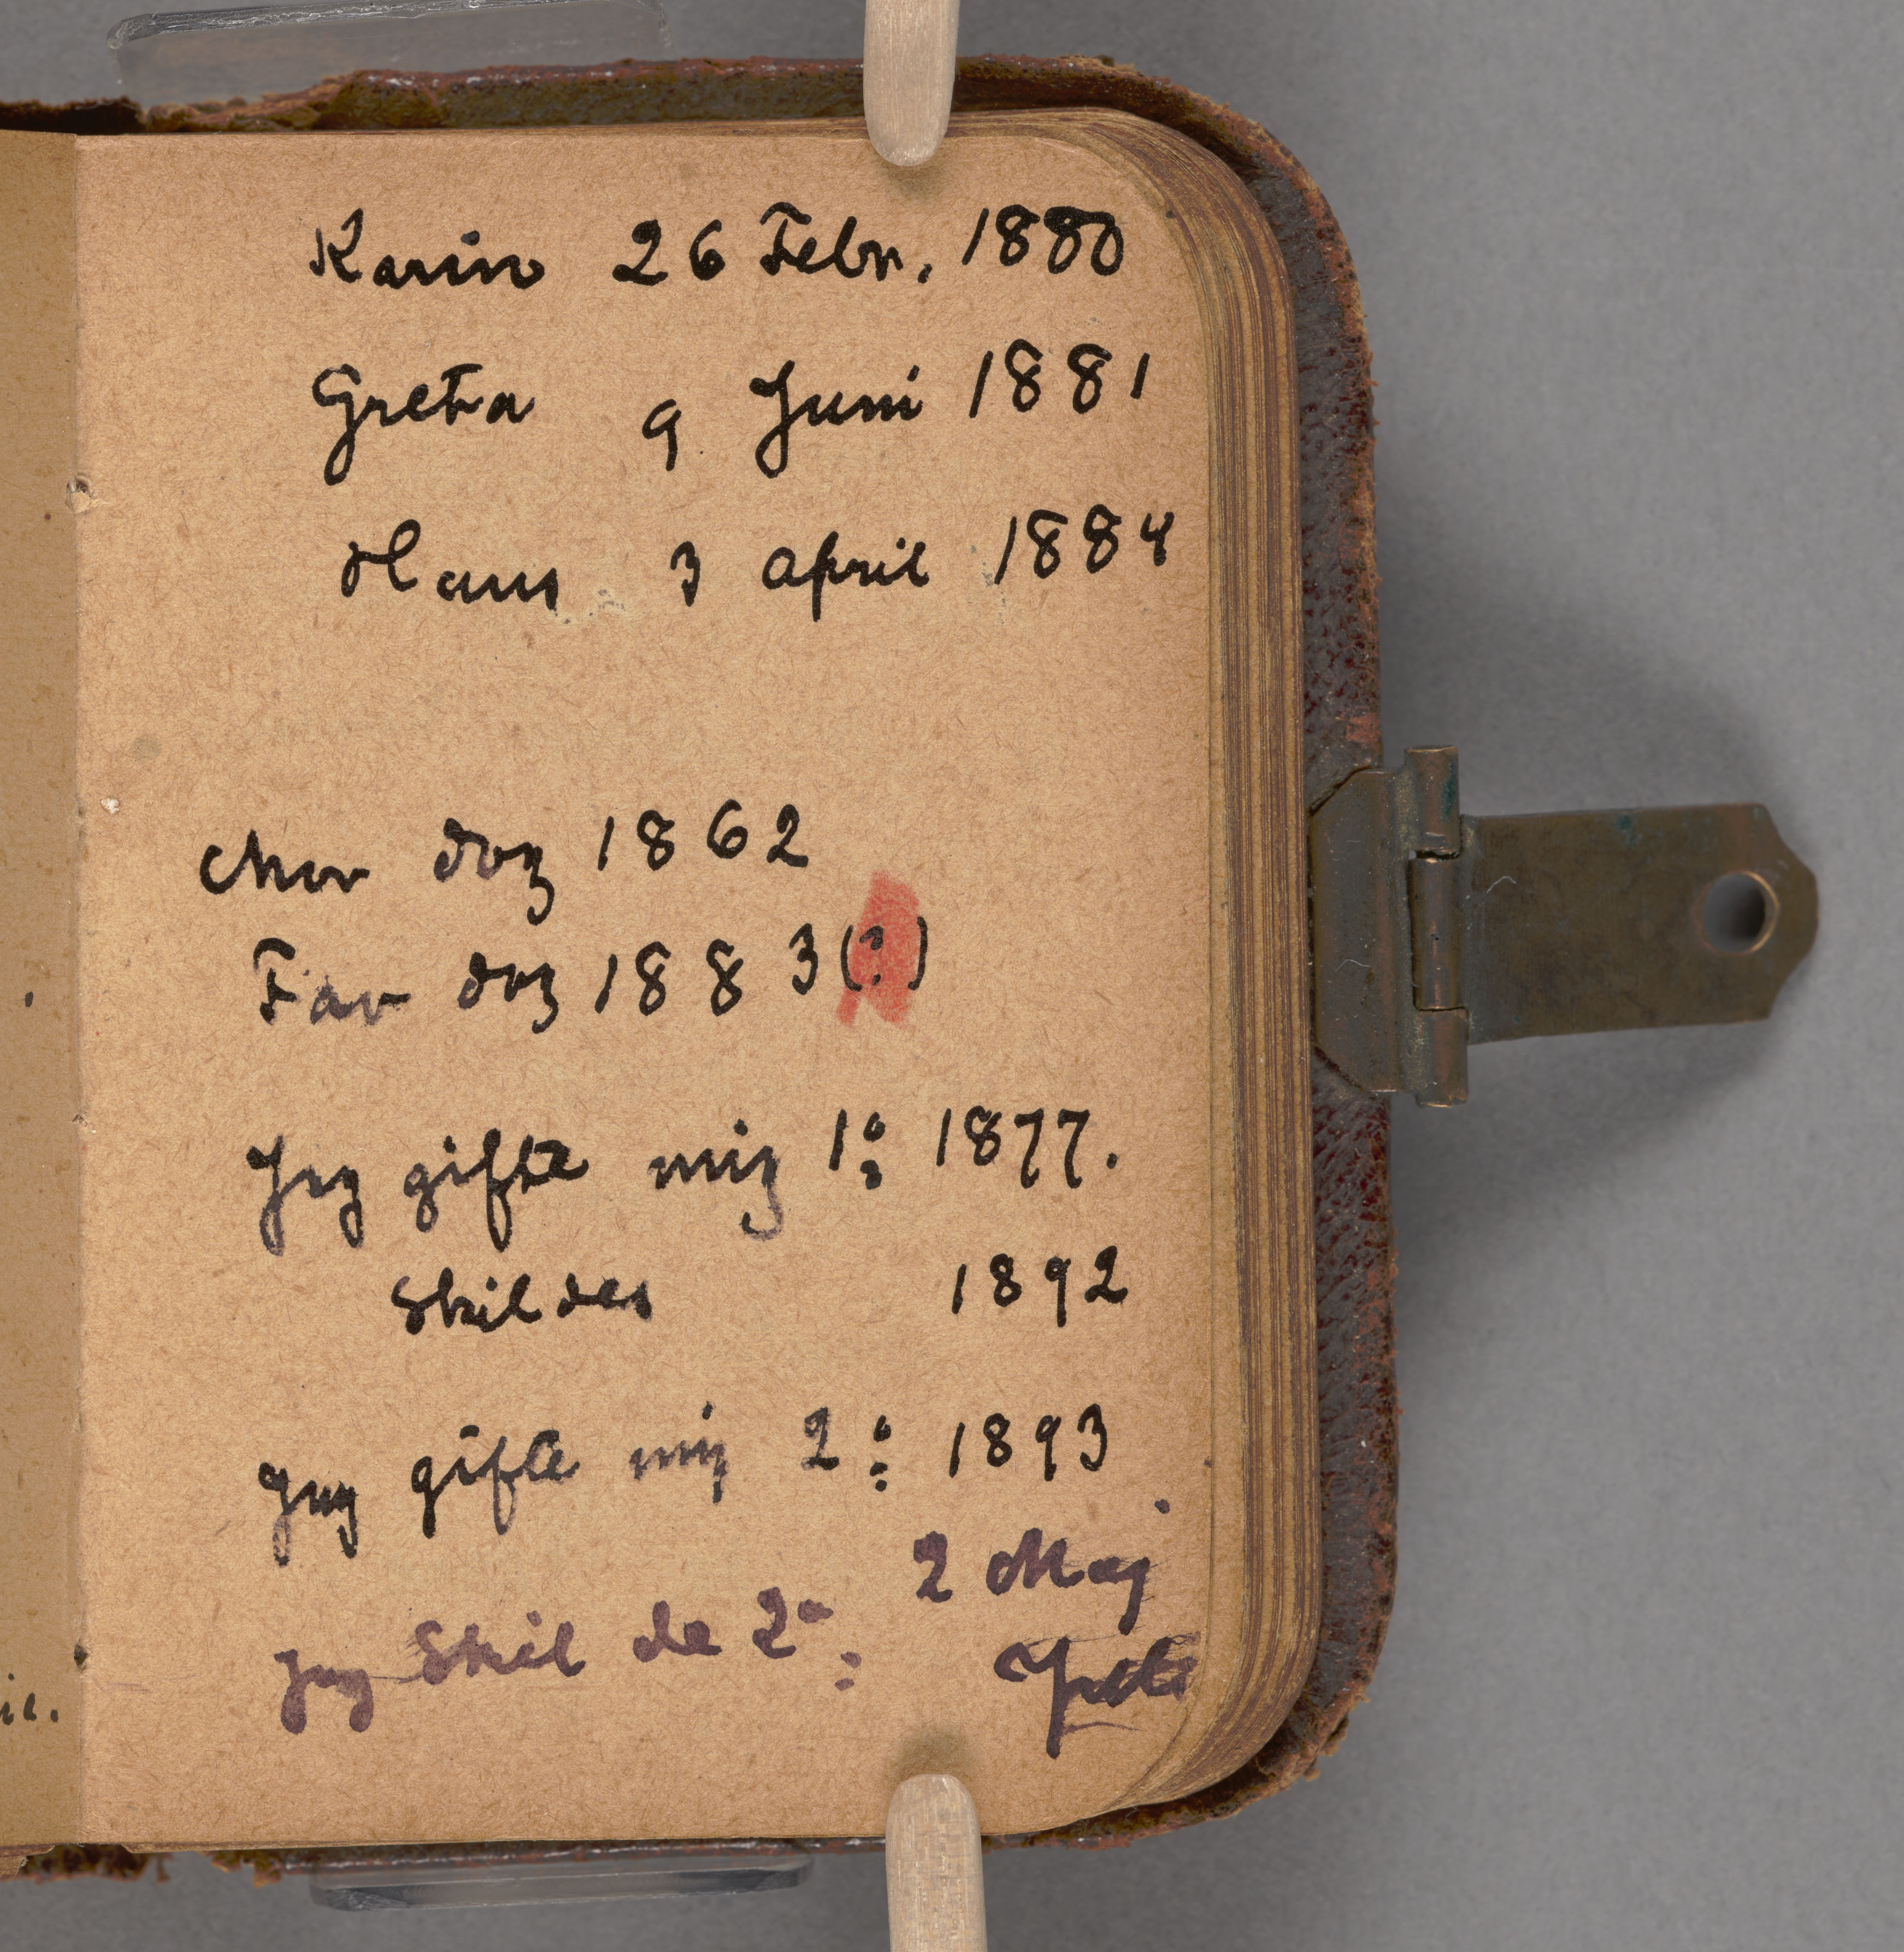 Karin 26 Febr. 1880
Greta 9 Juni 1881
Hans 3 April 1884
Mor dog 1862
Far dog 1883(?)
Jag gifte mig 1º: 1877.
Skildes 1892
Jag gifte mig 2º: 1893
2 Maj
Jag Skilde 2º: